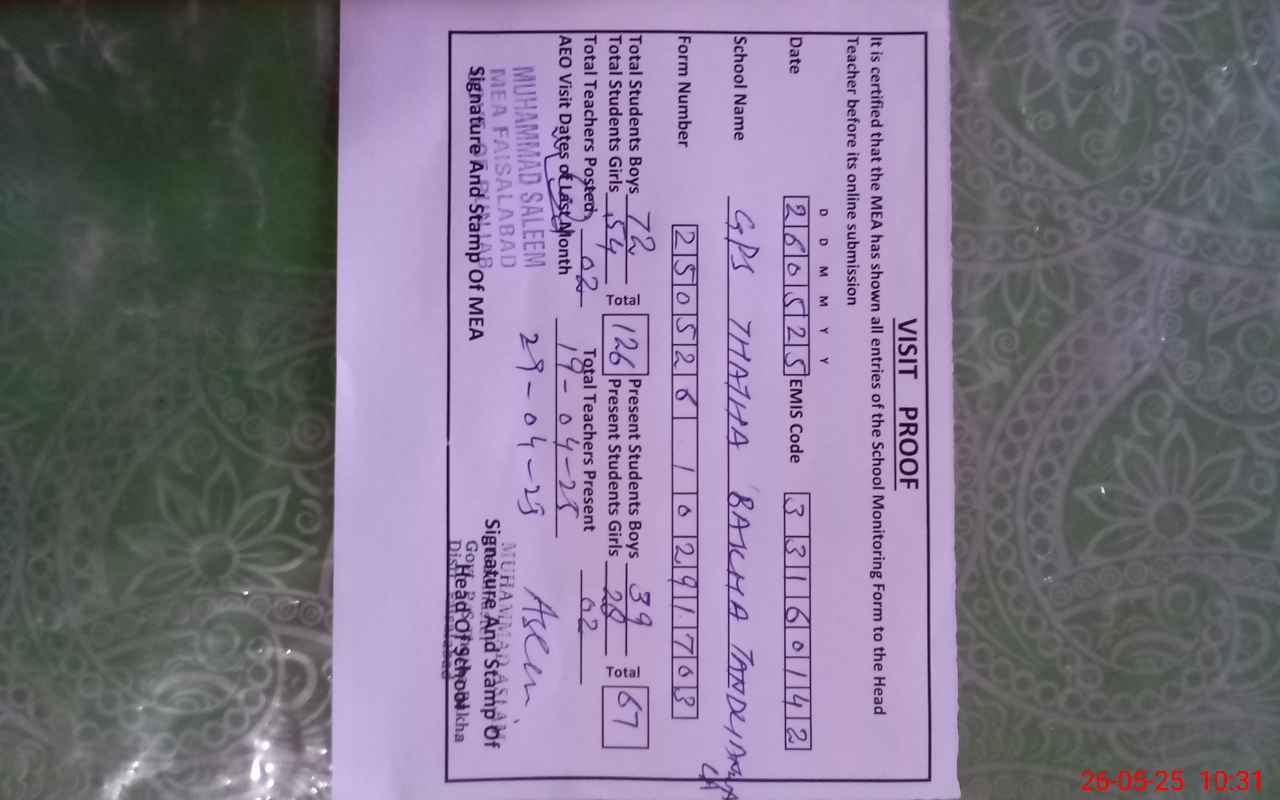 VISIT PROOF
It is certified that the MEA has shown all entries of the School Monitoring Form to the Head
Teacher before its online submission
D D M M Y Y
Date 260525 EMIS Code 33160142
School Name GPS THATHA BAKHA
Form Number 250526 1 0291703
Total Students Boys 72 Total 126 Present Students Boys 39 Total 67
Total Students Girls 54 Present Students Girls 28
Total Teachers Posted 02 Total Teachers Present 02
AEO Visit Dates of Last Month 19-04-25
29-04-25
MUHAMMAD SALEEM
MEA FAISALABAD
Signature And Stamp Of MEA
Aslam
MUHAMMAD ASLAM
Signature And Stamp Of
Head Of School
26-05-25 10:31